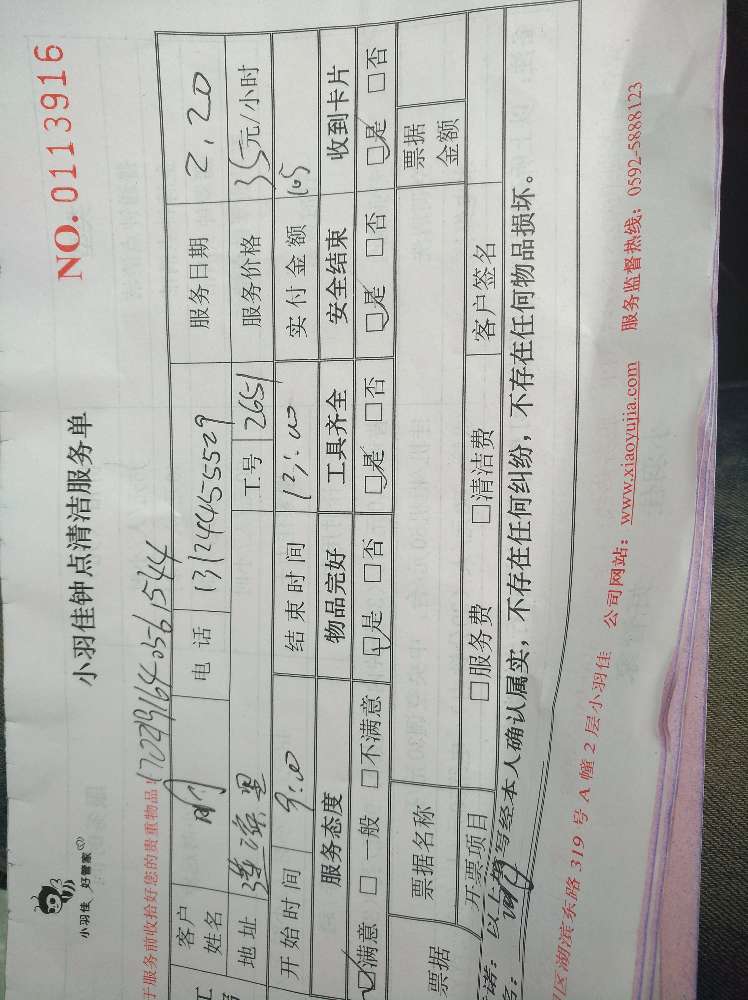 小羽佳 好管家
小羽佳钟点清洁服务单
NO.0113916
于服务前收拾好您的贵重物品!
客户姓名 电话 13124455529 服务日期 2.20
地址 工号 2651 服务价格 35元/小时
开始时间 9:00 结束时间 12:00 实付金额 105
服务态度 物品完好 工具齐全 安全结束 收到卡片
☑满意 □一般 □不满意 ☑是 □否 ☑是 □否 ☑是 □否 ☑是 □否
票据 票据名称 票据金额
开票项目 □服务费 □清洁费 客户签名
诺:以上填写经本人确认属实,不存在任何纠纷,不存在任何物品损坏。
区湖滨东路319号A幢2层小羽佳 公司网站:www.xiaoyujia.com 服务监督热线:0592-5888123